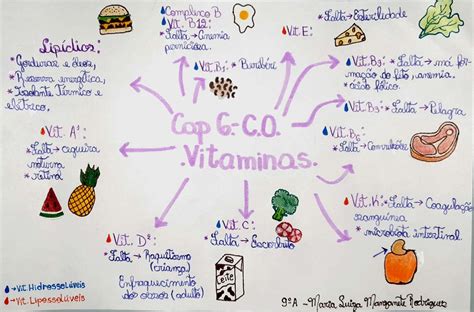 Complexo B
Vit. B12:
*Falta → Anemia
perniciosa.
Vit. E:
*Falta → Esterilidade
Lipídios:
*Gorduras e óleos,
*Reserva energética,
*Isolante Térmico e
elétrico.
Vit. B1: *Beribéri
Vit. B9: *Falta → má for-
mação do feto, anemia.
*ácido fólico
Vit. B3: *Falta → Pelagra
Vit. B6
*Falta → Convulsões
Cap 6 - C.O.
Vitaminas.
Vit. A:
*Falta → cegueira
noturna
*retinol
Vit. K: *Falta → Coagulação
sanguínea
*microbiota intestinal
Vit. D:
*Falta → Raquitismo
(criança)
Enfraquecimento
dos ossos (adulto)
Vit. C:
*Falta → Escorbuto
Leite
→ Vit. Hidrossolúveis
→ Vit. Lipossolúveis
9ºA - Maria Luiza Rodrigues